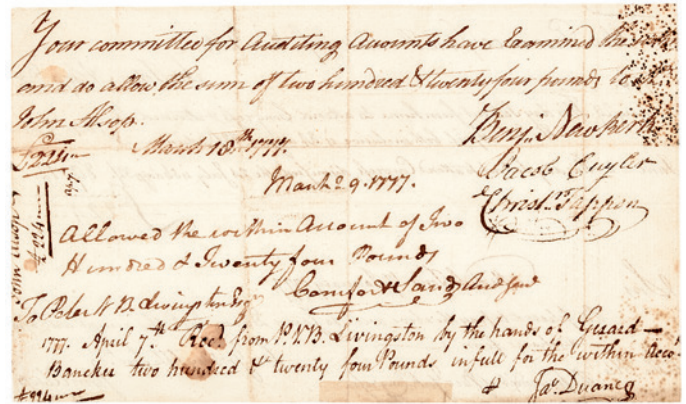 Your committee for Auditing Accounts have Examined the
and do allow the sum of two hundred & twenty four pounds to
John Alsop.
March 18th. 1777.
Benj. Newkerk
Jacob Cuyler
Christ. Tappen
March 29. 1777.
Allowed the within Account of Two
Hundred & Twenty four Pounds
Comfort Sands Aud Genl
To Peter V B. Livingston Esqr
1777. April 7th. Recd. from P. V. B. Livingston by the hands of Gerard
Bancker two hundred & twenty four Pounds in full for the within Acco
£224
Jas. Duane
John Alsop
£224